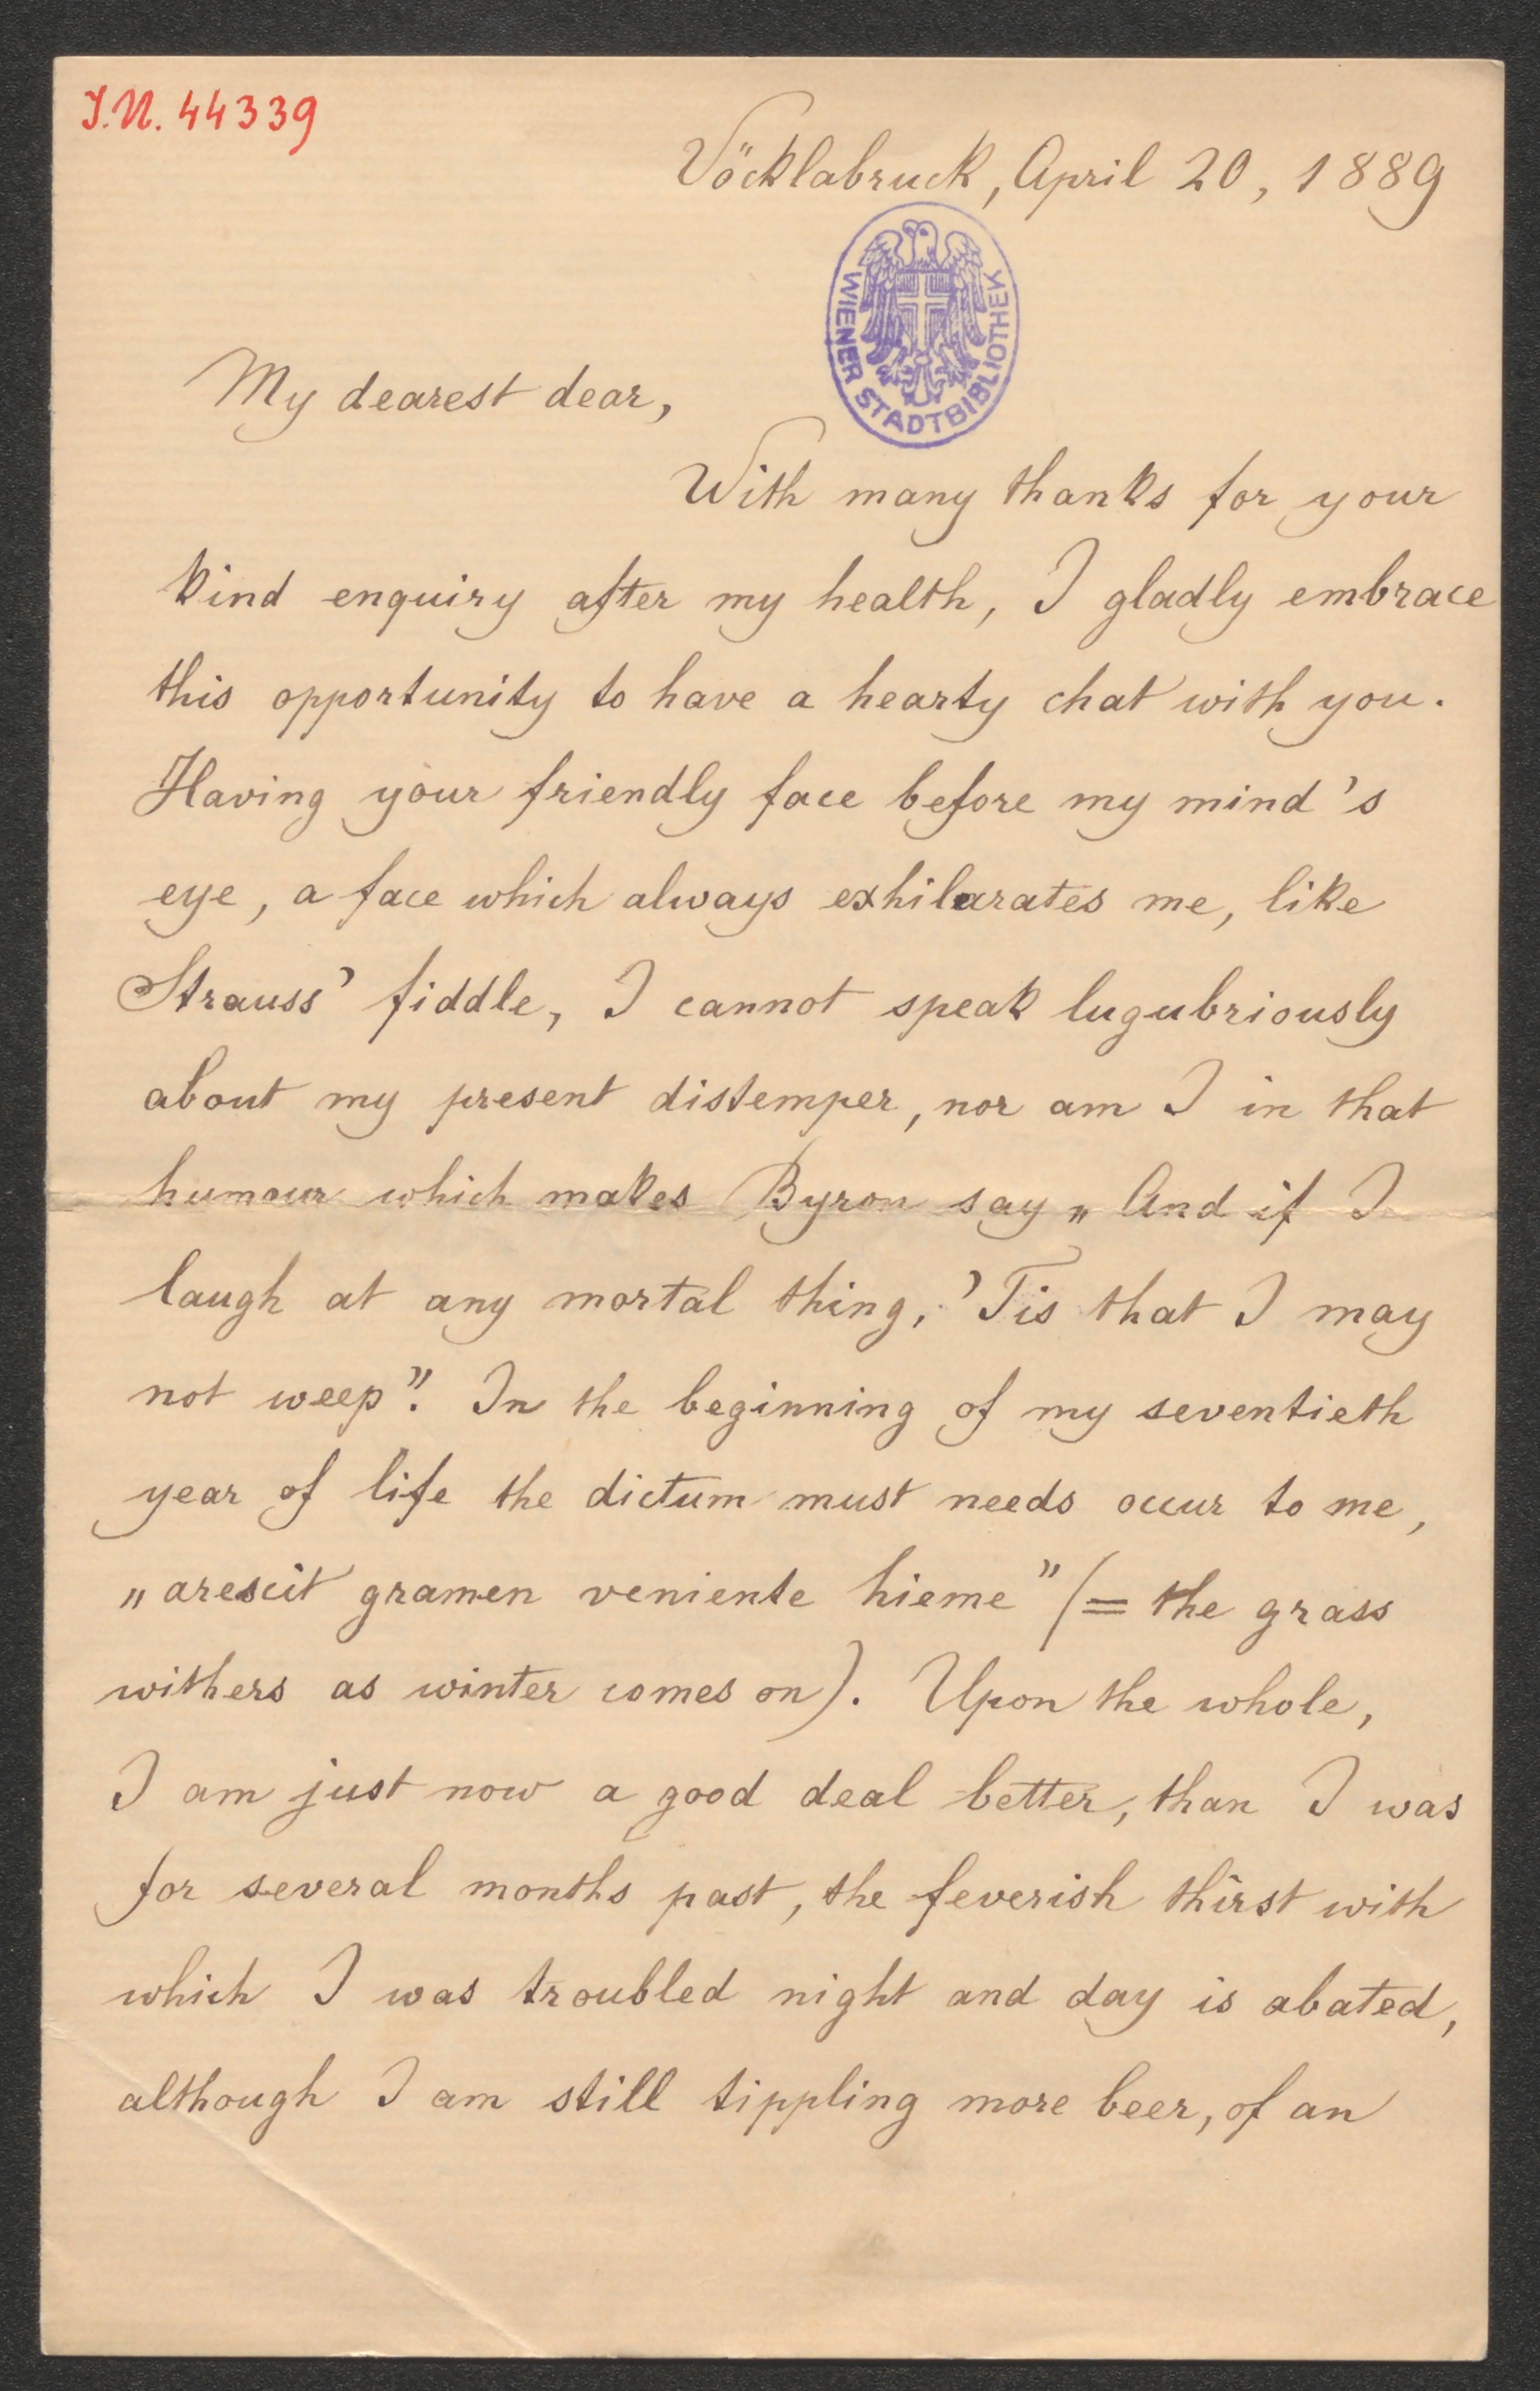 J.N. 44339
Vöcklabruck, April 20, 1889
WIENER STADTBIBLIOTHEK
My dearest dear,
With many thanks for your
kind enquiry after my health, I gladly embrace
this opportunity to have a hearty chat with you.
Having your friendly face before my mind's
eye, a face which always exhilarates me, like
Strauss' fiddle, I cannot speak lugubriously
about my present distemper, nor am I in that
humour which makes Byron say „And if I
laugh at any mortal thing, 'Tis that I may
not weep”. In the beginning of my seventieth
year of life the dictum must needs occur to me,
„arescit gramen veniente hieme” (= the grass
withers as winter comes on). Upon the whole,
I am just now a good deal better, than I was
for several months past, the feverish thirst with
which I was troubled night and day is abated,
although I am still tippling more beer, of an